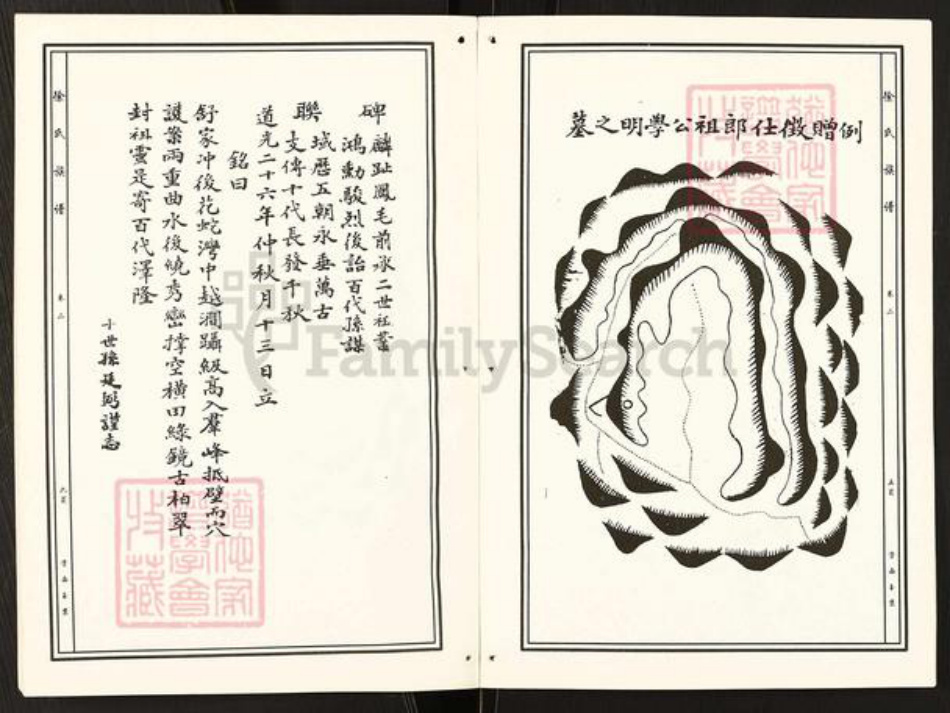 例贈徵仕郎祖公學明之墓
徐氏族譜
卷二
碑 麟趾鳳毛前承二世祖業
鴻勳駿烈後詒百代孫謀
聯 域歷五朝永垂萬古
支傳十代長發千秋
道光二十六年仲秋月十三日立
銘曰
舒家冲後花蛇灣中越澗躡級高入羣峰抵壁而穴
護業兩重曲水後繞秀巒撑空橫田綠鏡古柏翠
封祖靈是寄百代澤隆
十世孫廷弼謹志
徐氏族譜
卷二
FamilySearch